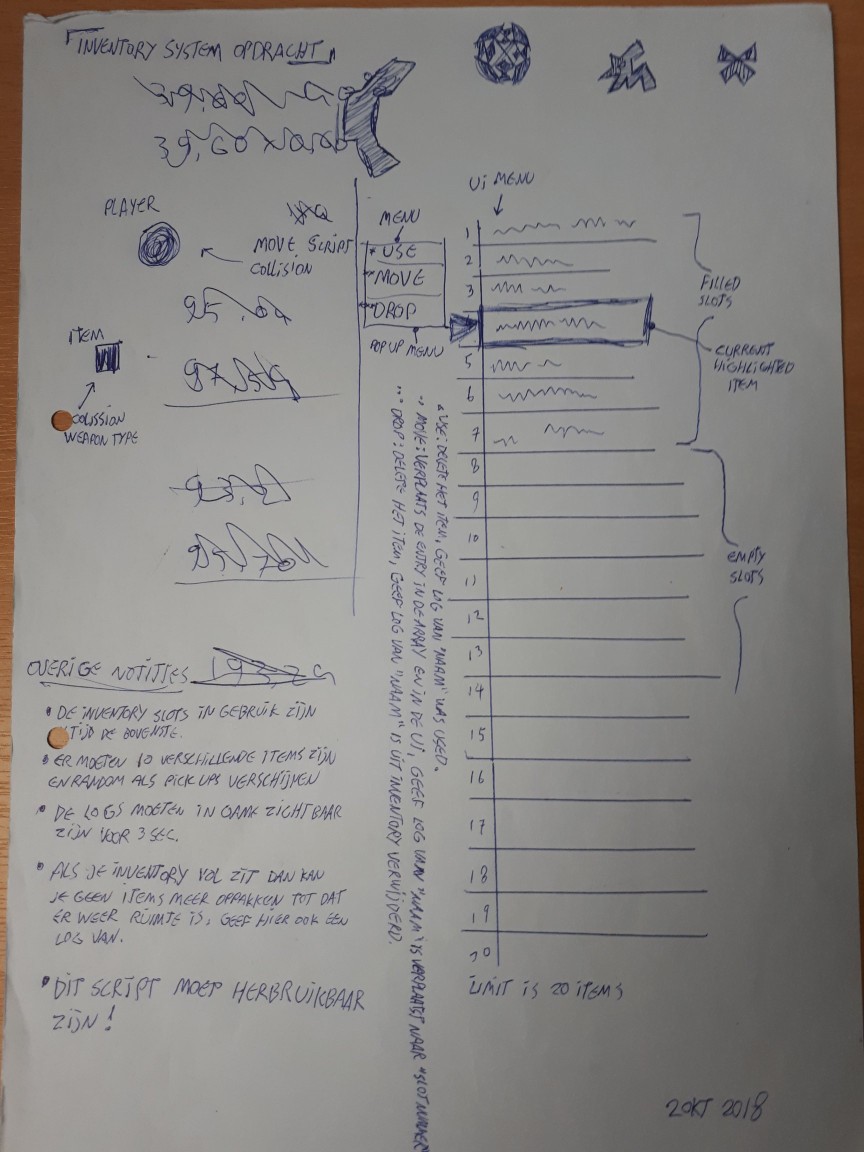 "INVENTORY SYSTEM OPDRACHT"
PLAYER
MOVE SCRIPT
COLLISION
ITEM
COLISSION
WEAPON TYPE
MENU
* USE
** MOVE
*** DROP
POP UP MENU
Ui MENU
1
2
3
5
6
7
8
9
10
11
12
13
14
15
16
17
18
19
20
LIMIT IS 20 ITEMS
FILLED
SLOTS
CURRENT
HIGHLIGHTED
ITEM
EMPTY
SLOTS
* USE: DELETE HET ITEM, GEEF LOG VAN "NAAM" WAS USED.
** MOVE: VERPLAATS DE ENTRY IN DE ARRAY EN IN DE Ui, GEEF LOG VAN "NAAM" IS VERPLAATST NAAR "SLOT NUMMER"
*** DROP: DELETE HET ITEM, GEEF LOG VAN "NAAM" IS UIT INVENTORY VERWIJDERD.
OVERIGE NOTITIES
• DE INVENTORY SLOTS IN GEBRUIK ZIJN
TIJD DE BOVENSTE.
• ER MOETEN 10 VERSCHILLENDE ITEMS ZIJN
EN RANDOM ALS PICK UPS VERSCHIJNEN
• DE LOGS MOETEN IN GAME ZICHTBAAR
ZIJN VOOR 3 SEC.
• ALS JE INVENTORY VOL ZIT DAN KAN
JE GEEN ITEMS MEER OPPAKKEN TOT DAT
ER WEER RUIMTE IS, GEEF HIER OOK EEN
LOG VAN.
• DIT SCRIPT MOET HERBRUIKBAAR
ZIJN!
2 OKT 2018